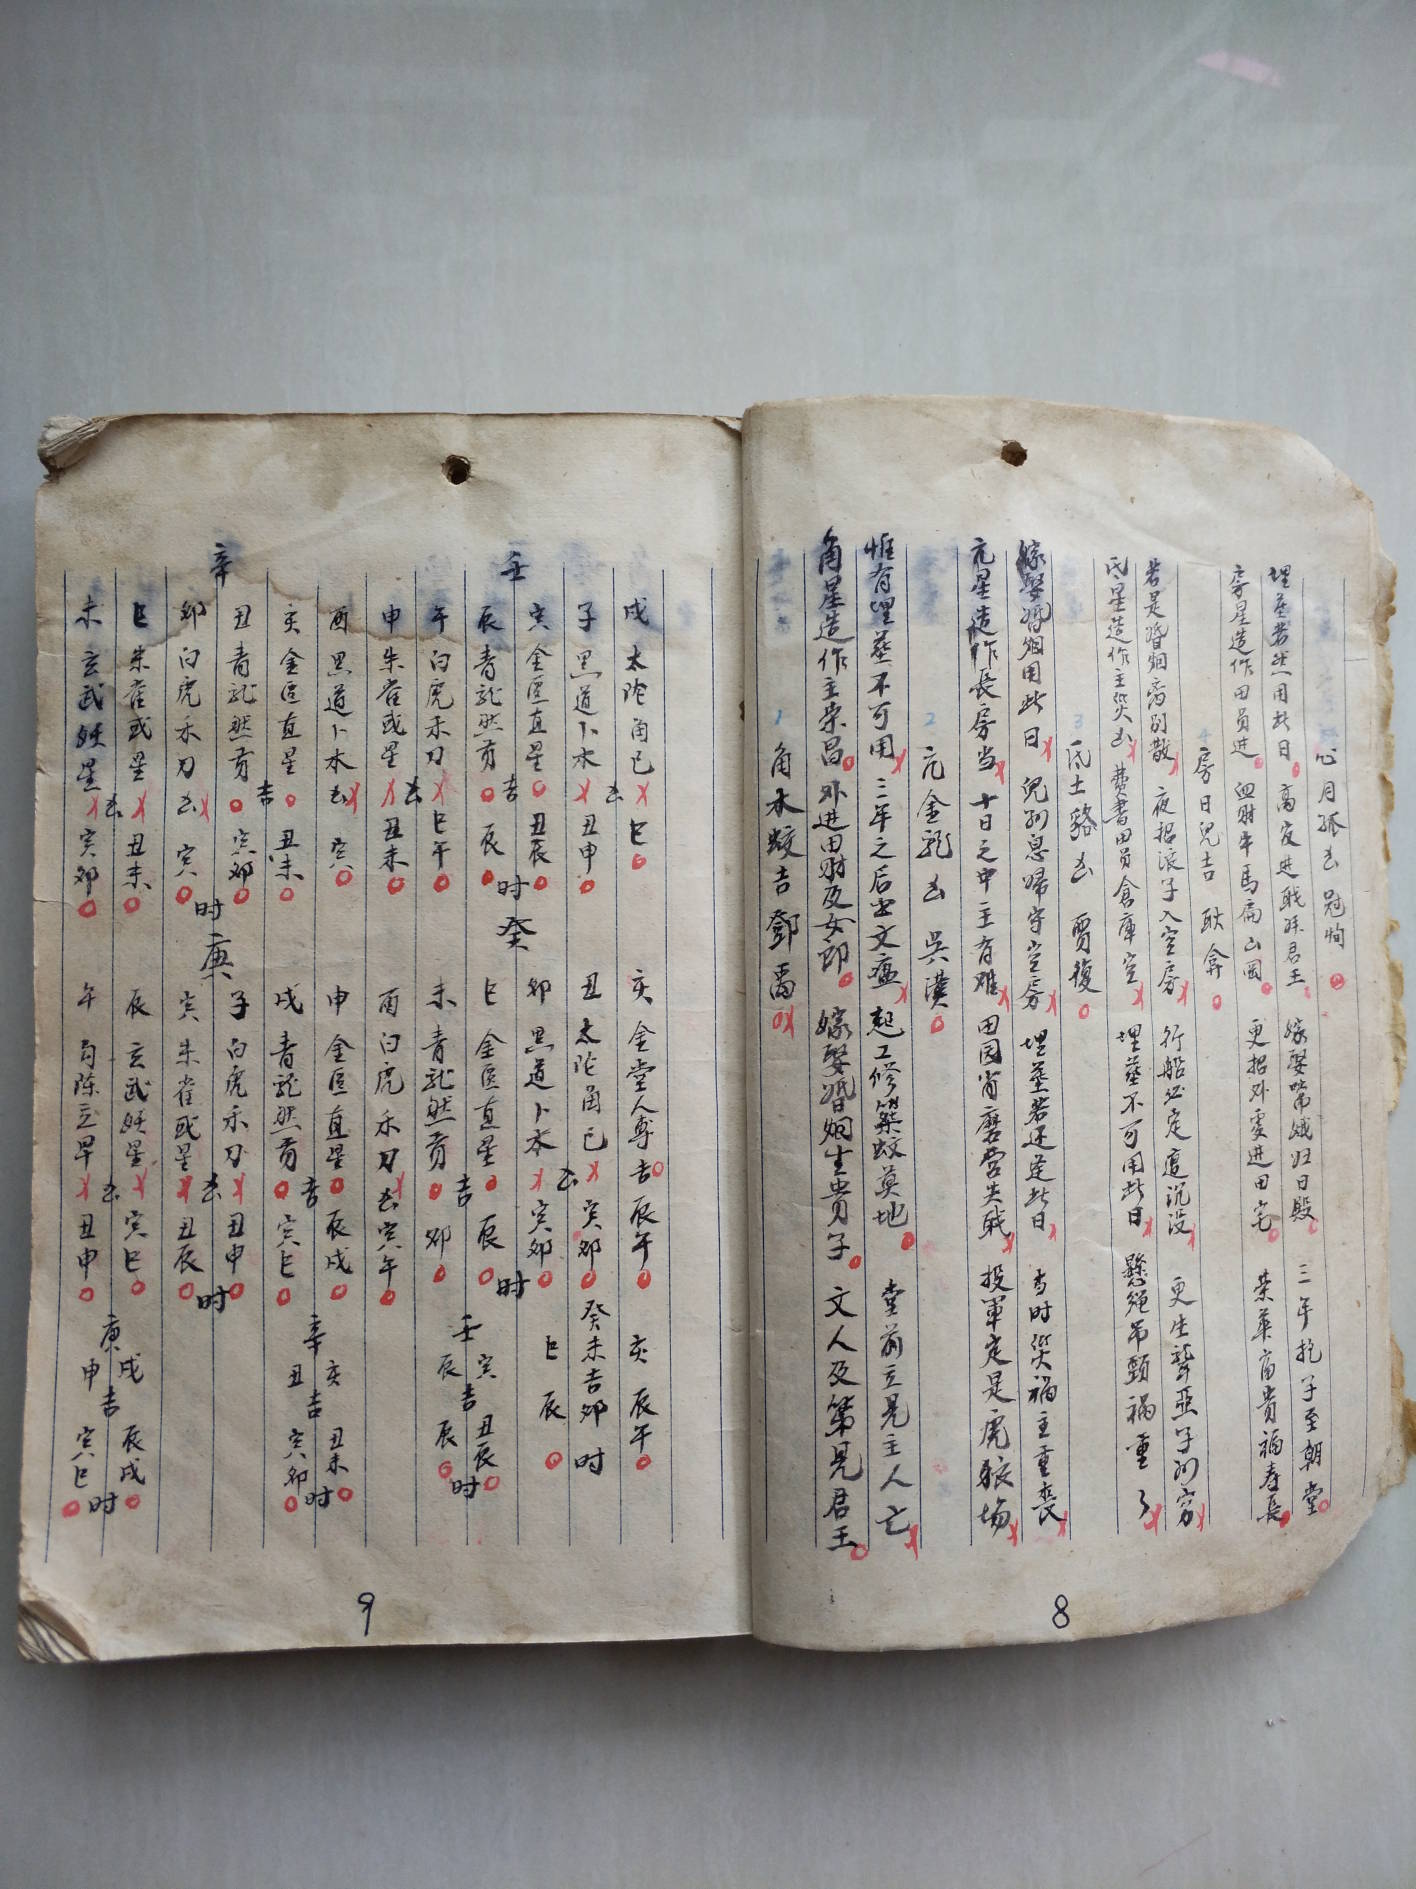 1 角木蛟吉 鄧禹
角星造作主荣昌 外进田财及女郎 嫁娶婚姻生貴子 文人及第見君王
惟有埋葬不可用 三年之后出文瘟 起工修築蚊莫地 堂前立見主人亡
2 亢金龍凶 吳漢
亢星造作長房当 十日之中主有难 田园肖磨官失戝 投軍定是虎狼場
嫁娶婚姻用此日 兒孙息婦守空房 埋葬若还逢此日 当时災禍主重喪
3 氐土貉凶 賈復
氐星造作主災凶 费書田員倉庫空 埋葬不可用此日 懸绳吊頸禍重了
若是婚姻离别散 夜招浪子入空房 行船必定遭沉没 更生聋哑子孙穷
4 房日兒吉 耿弇
房星造作田员进 血财牛馬扁山岡 更招外處进田宅 荣華富貴福寿長
埋葬若然用此日 高官进戝拜君王 嫁娶常娥归日殿 三年抱子至朝堂
心月狐凶 冠恂
8
戌 太陀角已 巳 亥 金堂人專吉 辰午 亥 辰午
凶
子 黑道卜木 丑申 丑 太陀角已 寅卯 癸未吉卯时
凶
寅 金匡直星 丑辰 卯 黑道卜木 寅卯 巳 辰
壬 吉 时 癸 时
辰 青龙然贡 辰 巳 金匡直星 辰 寅 丑辰
吉 壬 吉 时
午 白虎禾刀 巳午 未 青龙然贡 卯 辰 辰
凶
申 朱雀或星 丑未 酉 白虎禾刀凶 寅午
酉 黑道卜木凶 寅 申 金匡直星 辰戌 亥 丑未
吉 辛 吉 时
亥 金匡直星 丑未 戌 青龙然贡 寅巳 丑 寅卯
吉
丑 青龙然贡 寅卯 子 白虎禾刀 丑申
辛 时 庚 凶 时
卯 白虎禾刀凶 寅 寅 朱雀或星 丑辰
巳 朱雀或星 丑未 辰 玄武妖星 寅巳 戌 辰戌
凶 凶 庚 吉 时
未 玄武妖星 寅卯 午 勾陈立早 丑申 申 寅巳
9